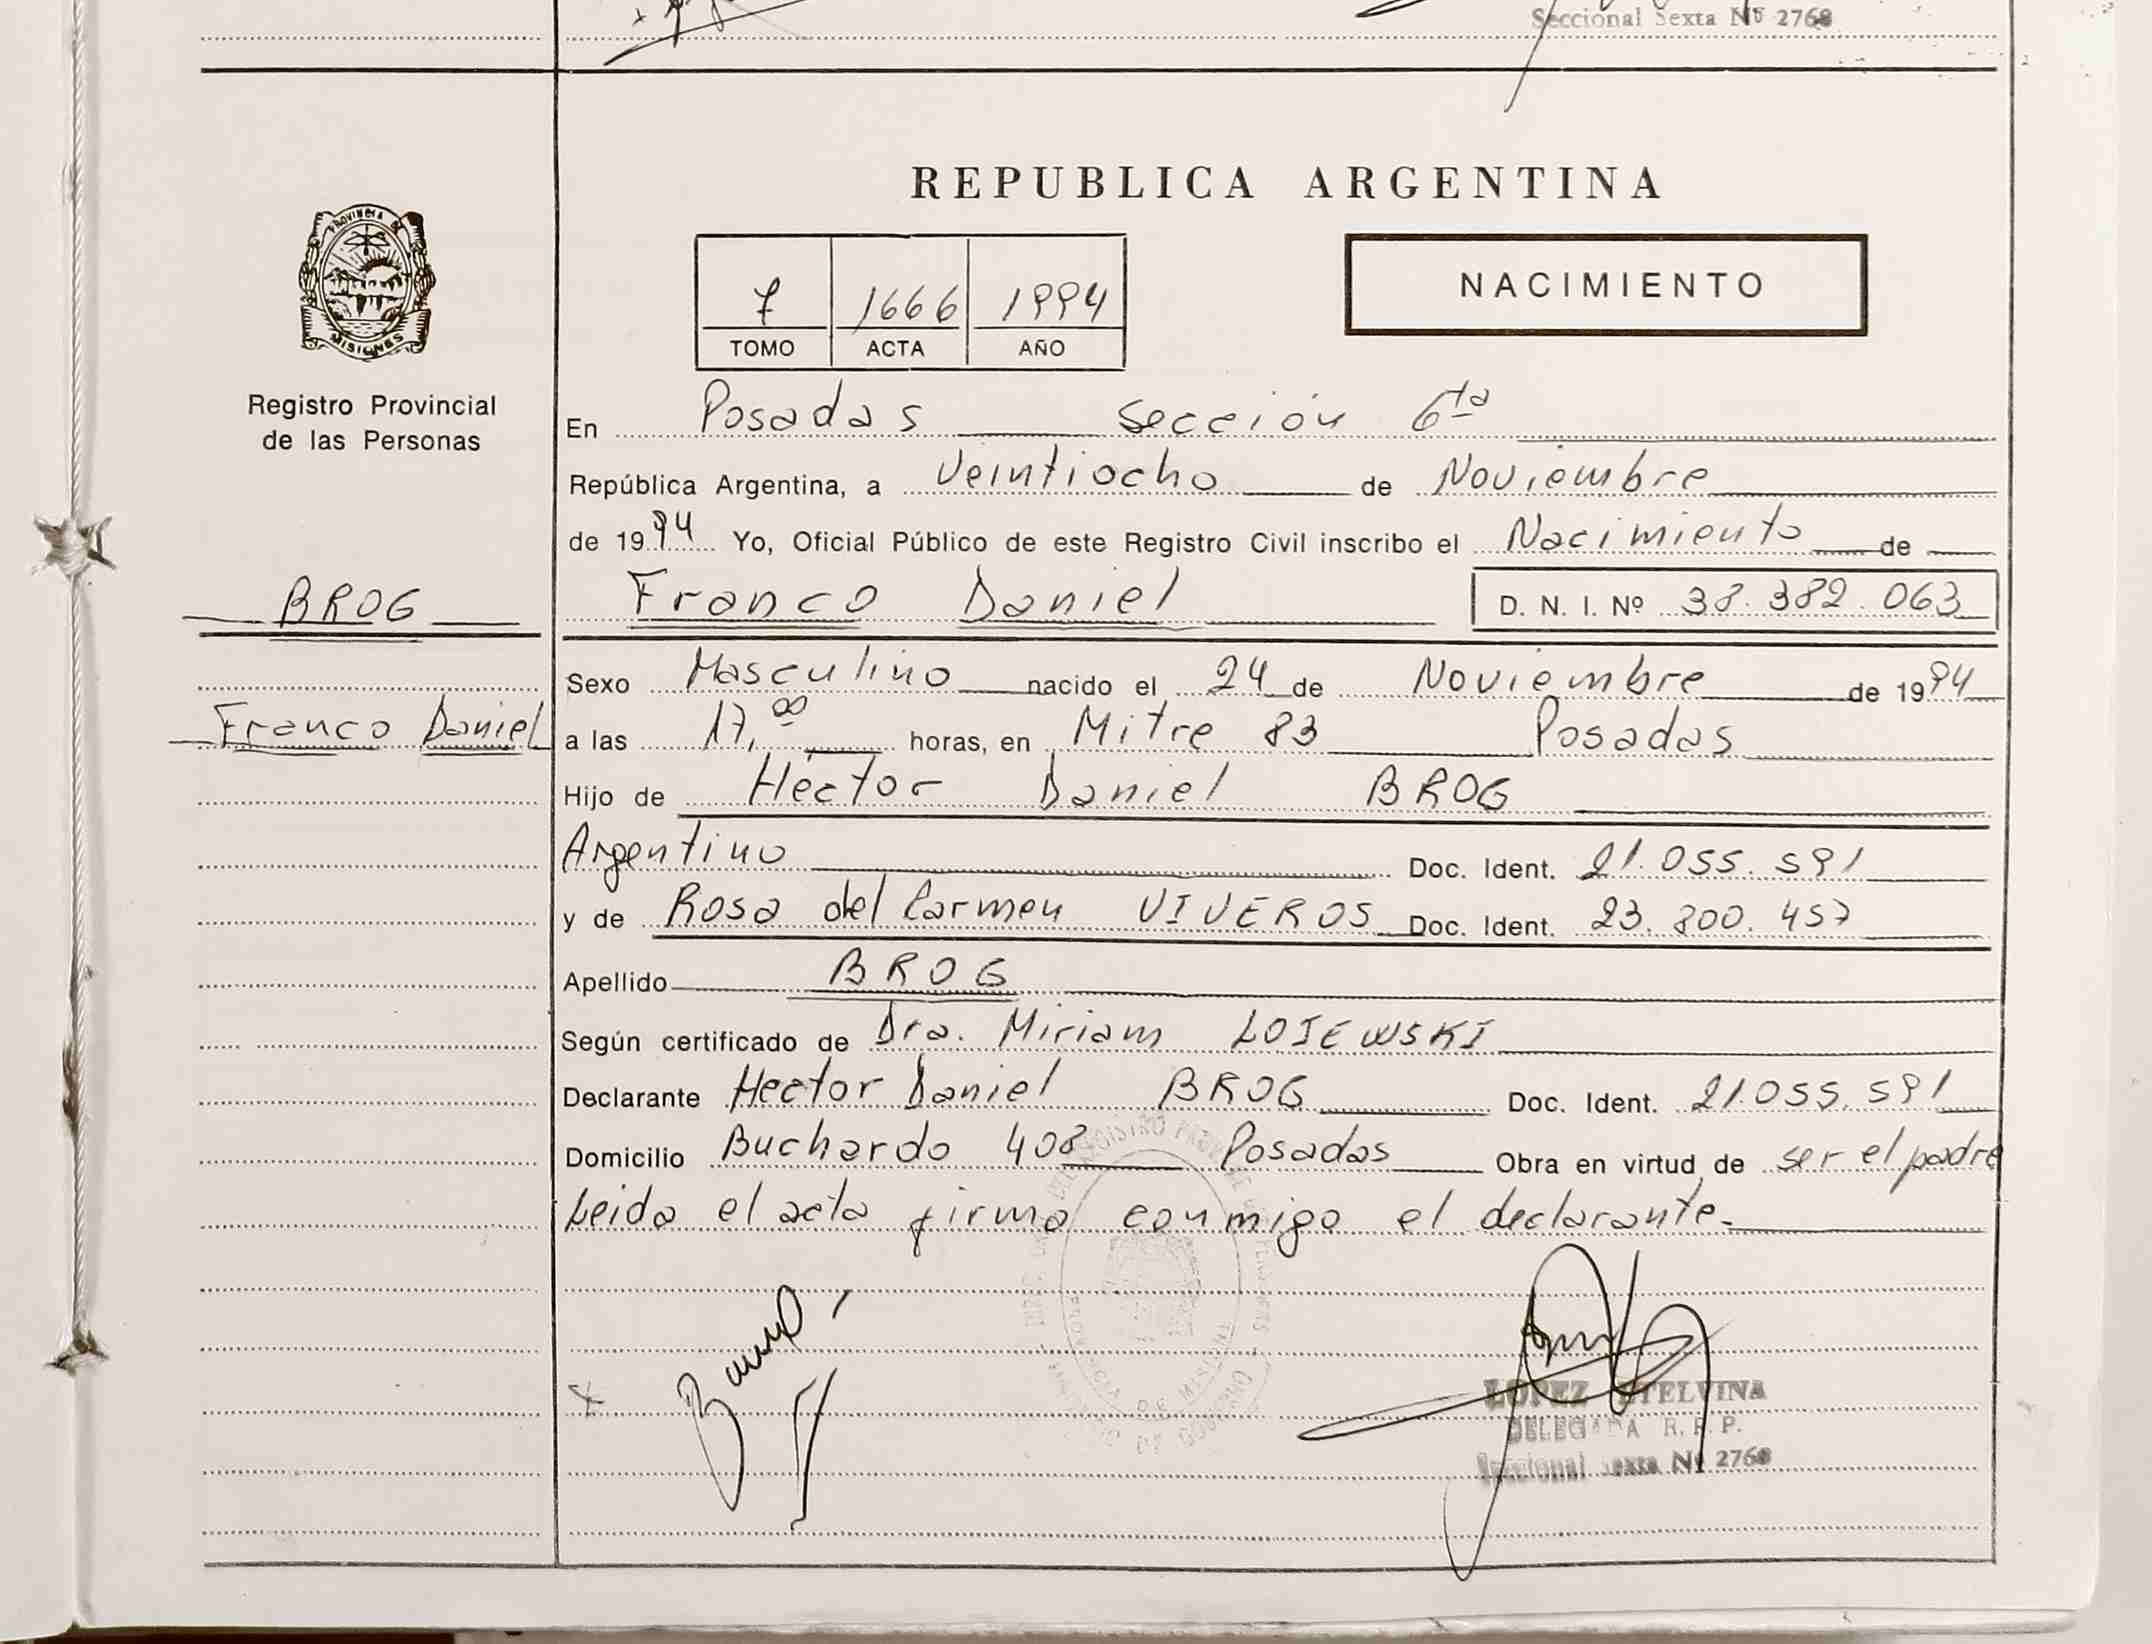 Seccional Sexta Nº 2768
REPUBLICA ARGENTINA
PROVINCIA DE
MISIONES
Registro Provincial
de las Personas
7 1666 1994
TOMO ACTA AÑO
NACIMIENTO
En Posadas Sección 6ta
República Argentina, a Veintiocho de Noviembre
de 1994 Yo, Oficial Público de este Registro Civil inscribo el Nacimiento de
BROG
Franco Daniel D. N. I. Nº 38.382.063
Sexo Masculino nacido el 24 de Noviembre de 1994
Franco Daniel
a las 17,00 horas, en Mitre 83 Posadas
Hijo de Héctor Daniel BROG
Argentino Doc. Ident. 21.055.591
y de Rosa del Carmen VIVEROS Doc. Ident. 23.800.457
Apellido BROG
Según certificado de Dra. Miriam LOJEWSKI
Declarante Hector Daniel BROG Doc. Ident. 21.055.591
Domicilio Buchardo 408 Posadas Obra en virtud de ser el padre
Leida el acta firma conmigo el declarante.
LOPEZ ETELVINA
DELEGADA R. P. P.
Seccional Sexta Nº 2768